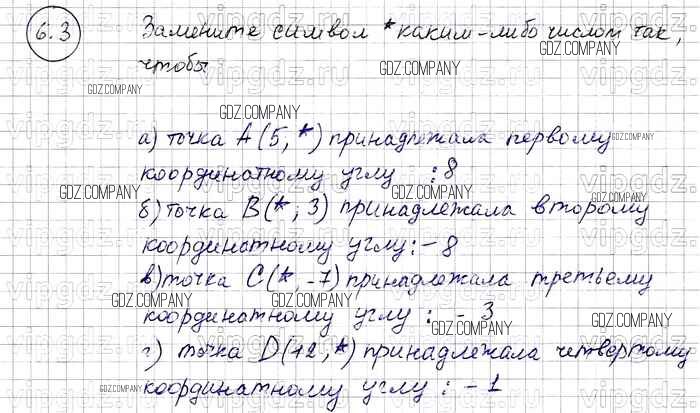 6.3 Замените символ * каким-либо числом так,
чтобы
а) точка A(5, *) принадлежала первому
координатному углу : 8
б) точка B(*; 3) принадлежала второму
координатному углу: -8
в) точка C(*, -7) принадлежала третьему
координатному углу : - 3
г) точка D(12, *) принадлежала четвертому
координатному углу : -1
GDZ.COMPANY
vipgdz.com